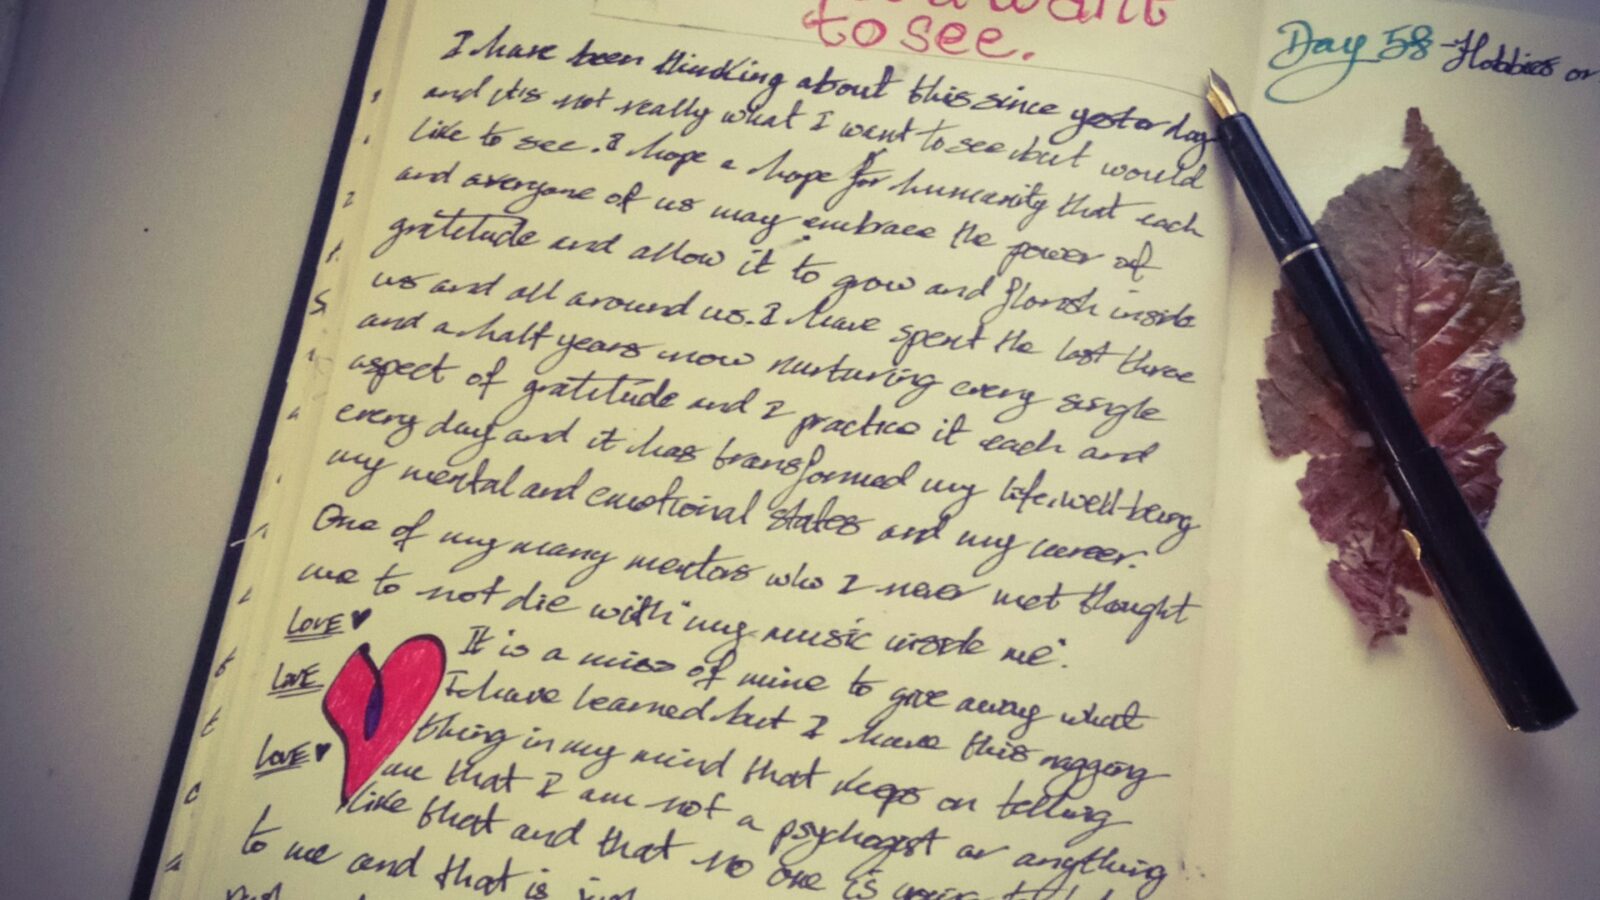 want
to see.
I have been thinking about this since yesterday
and it's not really what I want to see but would
like to see. I hope a hope for humanity that each
and everyone of us may embrace the power of
gratitude and allow it to grow and florish inside
us and all around us. I have spent the last three
and a half years now nurturing every single
aspect of gratitude and I practice it each and
every day and it has transformed my life, well-being
my mental and emotional states and my career.
One of my many mentors who I never met thought
me to not die with "my music inside me".
It is a miss of mine to give away what
I have learned but I have this nagging
thing in my mind that keps on telling
me that I am not a psychogist or anything
like that and that no one is
to me and that is just
LOVE ♥
LOVE
LOVE ♥
Day 58 - Hobbies or